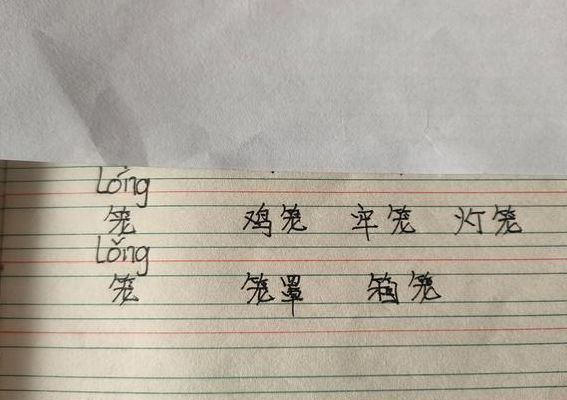 lóng
笼 鸡笼 牢笼 灯笼
lǒng
笼 笼罩 箱笼